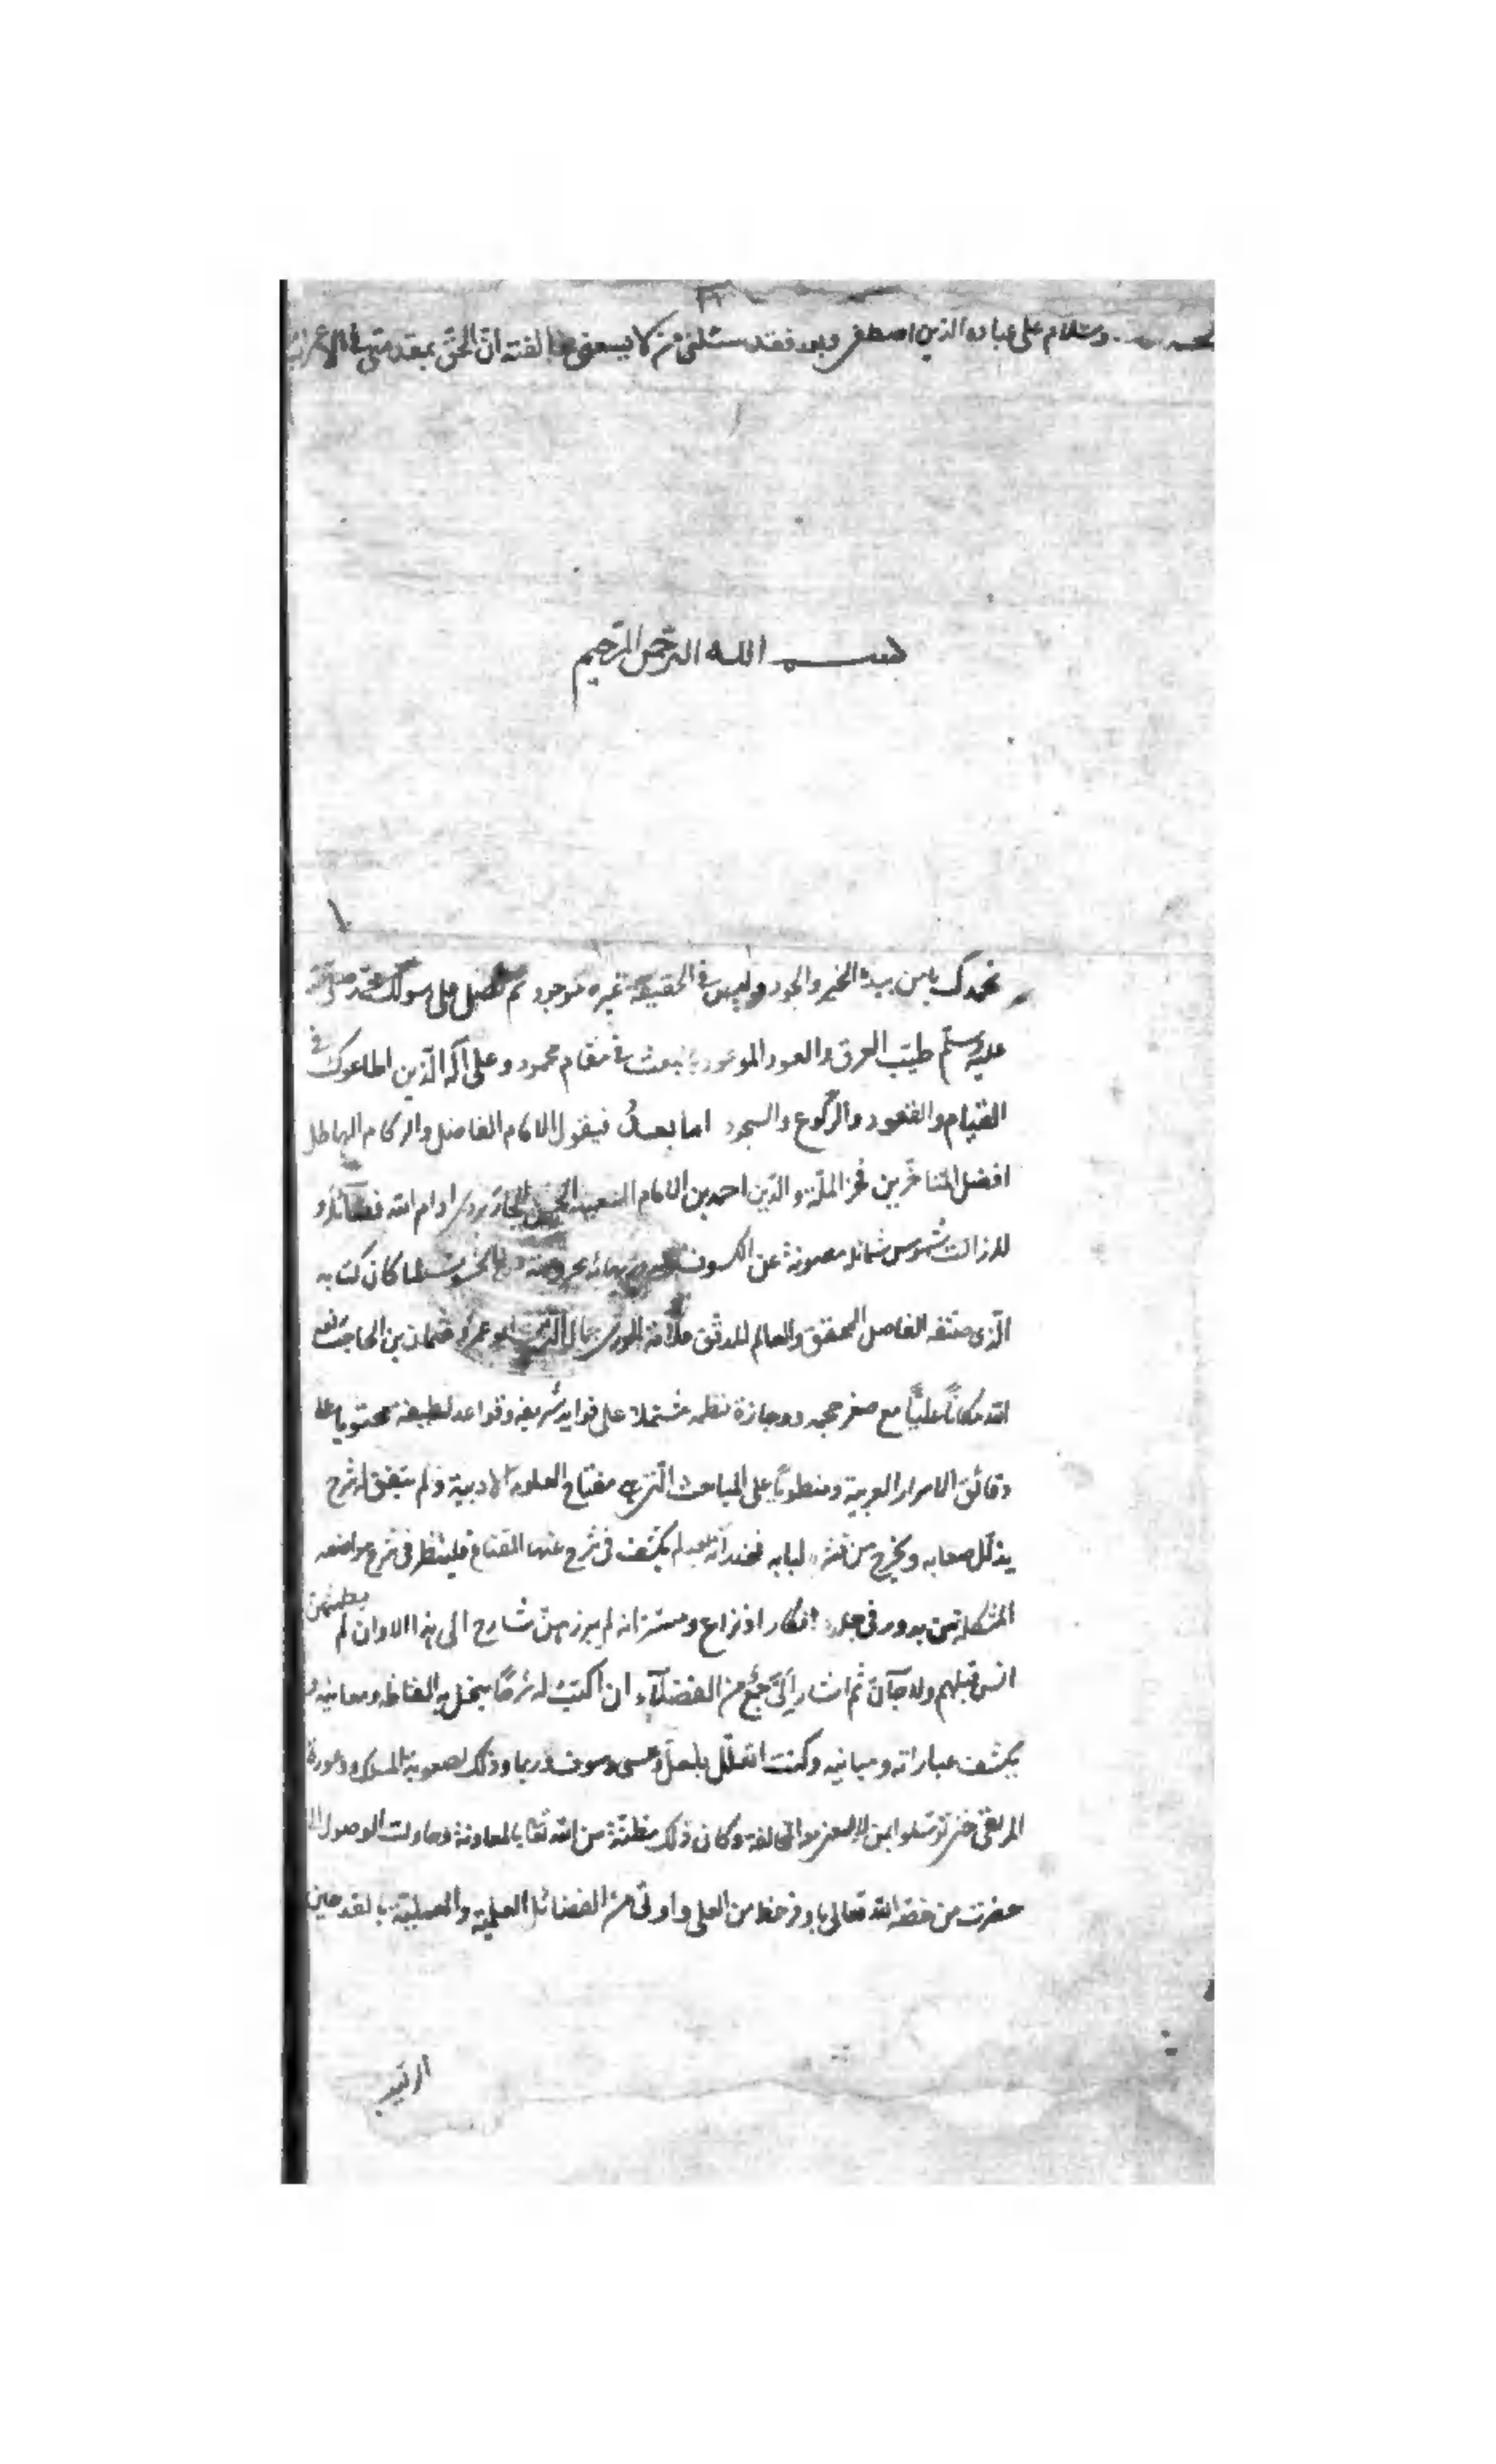 وسلام على عباده الذين اصطفى وبعد فقد سئلنى من لا يسعنى مخالفته ان الحق بمقدمتى فى الاعراب
بسم الله الرحمن الرحيم
نحمدك يا من بيده الخير والجود وليس فى الحقيقة غيره موجود ثم نصلى على رسولك محمد صلى الله
عليه وسلم طيب العرق والعود الموعود بالبعث فى مقام محمود وعلى آله الذين اطاعوك فى
القيام والقعود والركوع والسجود اما بعد فيقول الامام الفاضل والركام الهاطل
افضل المتأخرين فخر الملة والدين احمد بن الامام السعيد الحسن الجاربردى ادام الله فضائله و
لازالت شموس شمائله مصونة عن الكسوف محروسة عن الخسوف لما كان كتابه
الذى صنفه الفاضل المحقق والعالم المدقق علامة الورى جمال الدين ابو عمرو عثمان بن الحاجب
الله مكانا عليا مع صغر حجمه ووجازة نظمه مشتملا على فوايد شريفة وقواعد لطيفة محتويا على
دقائق الاسرار العربية ومنطويا على المباحث التى هى مفتاح العلوم الادبية ولم يتفق له شرح
يذلل صعابه ويخرج من قشره لبابه فخدراته بعد لم يكشف فى شرح عنها القناع فلينظر فى شرح مواضعه
المشكلة من يدور فى خلده انكار او نزاع ومستتراته لم يبرزهن شارح الى هذا الاوان لم يطمثهن
انس قبلهم ولا جان ثم اشار الى جمع من الفضلاء ان اكتب له شرحا ينحل به الفاظه ومعانيه و
يكشف عباراته ومبانيه وكنت اتعلل بلعل وعسى وسوف وربما وذلك لصعوبة المسلك ووعورة
المرتقى حتى توسلوا بمن لا يسعنى مخالفته وكان ذلك مظنة من الله تعالى بالمعاونة وحاولت الوصول الى
حضرت من خصه الله تعالى باوفر حظ من العلى واوتى من الفضائل العلمية والعملية بالقدحين